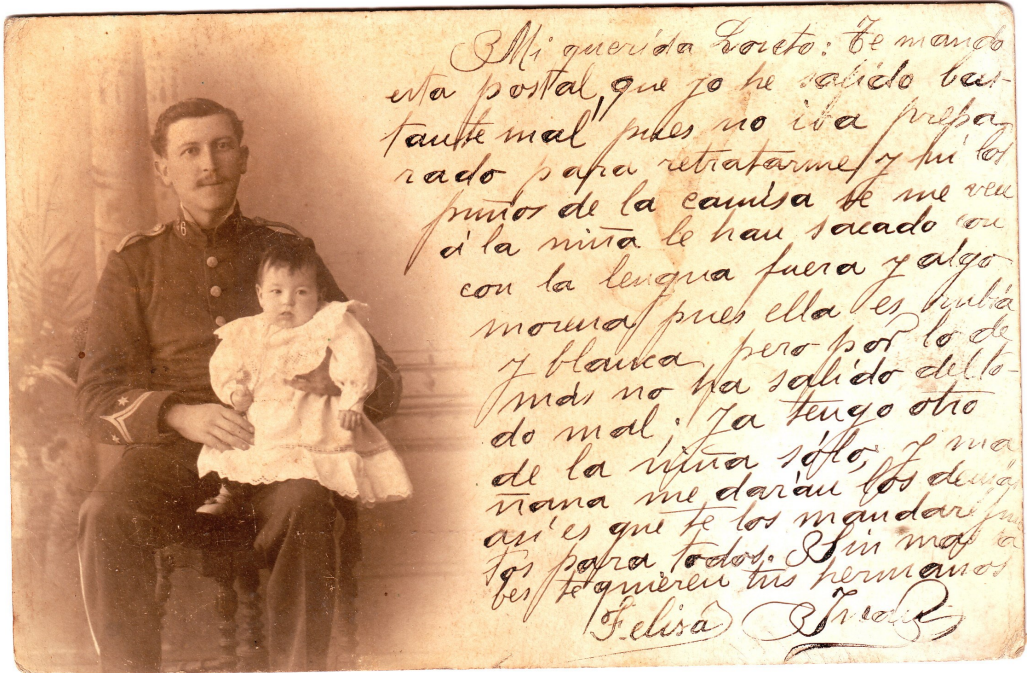 Mi querida Loreto: Te mando
esta postal, que yo he salido bas-
tante mal, pues no iba prepa
rado para retratarme, y ni los
puños de la camisa se me ven
á la niña le han sacado con
con la lengua fuera y algo
morena, pues ella es rubia
y blanca, pero por lo de
más no ha salido del to-
do mal; Ya tengo otro
de la niña sólo, y ma
ñana me darán los demás
así es que te los mandaré jun
tos para todos. Sin mas ya
bes te quieren tus hermanos
Felisa Juan
6